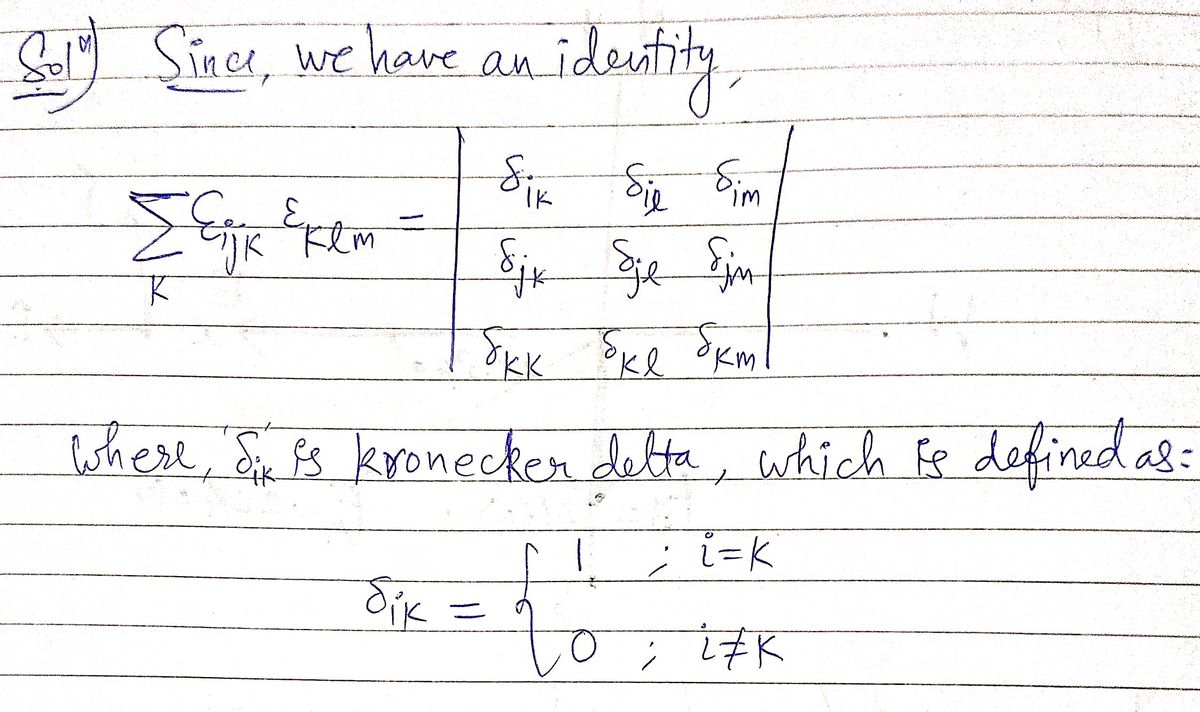 Solⁿ) Since, we have an identity,
∑_K ε_ijK ε_Klm = | δ_iK δ_il δ_im |
| δ_jK δ_jl δ_jm |
| δ_KK δ_Kl δ_Km |
where, 'δ_iK' is kronecker delta, which is defined as:
δ_iK = { 1 ; i=K
0 ; i≠K